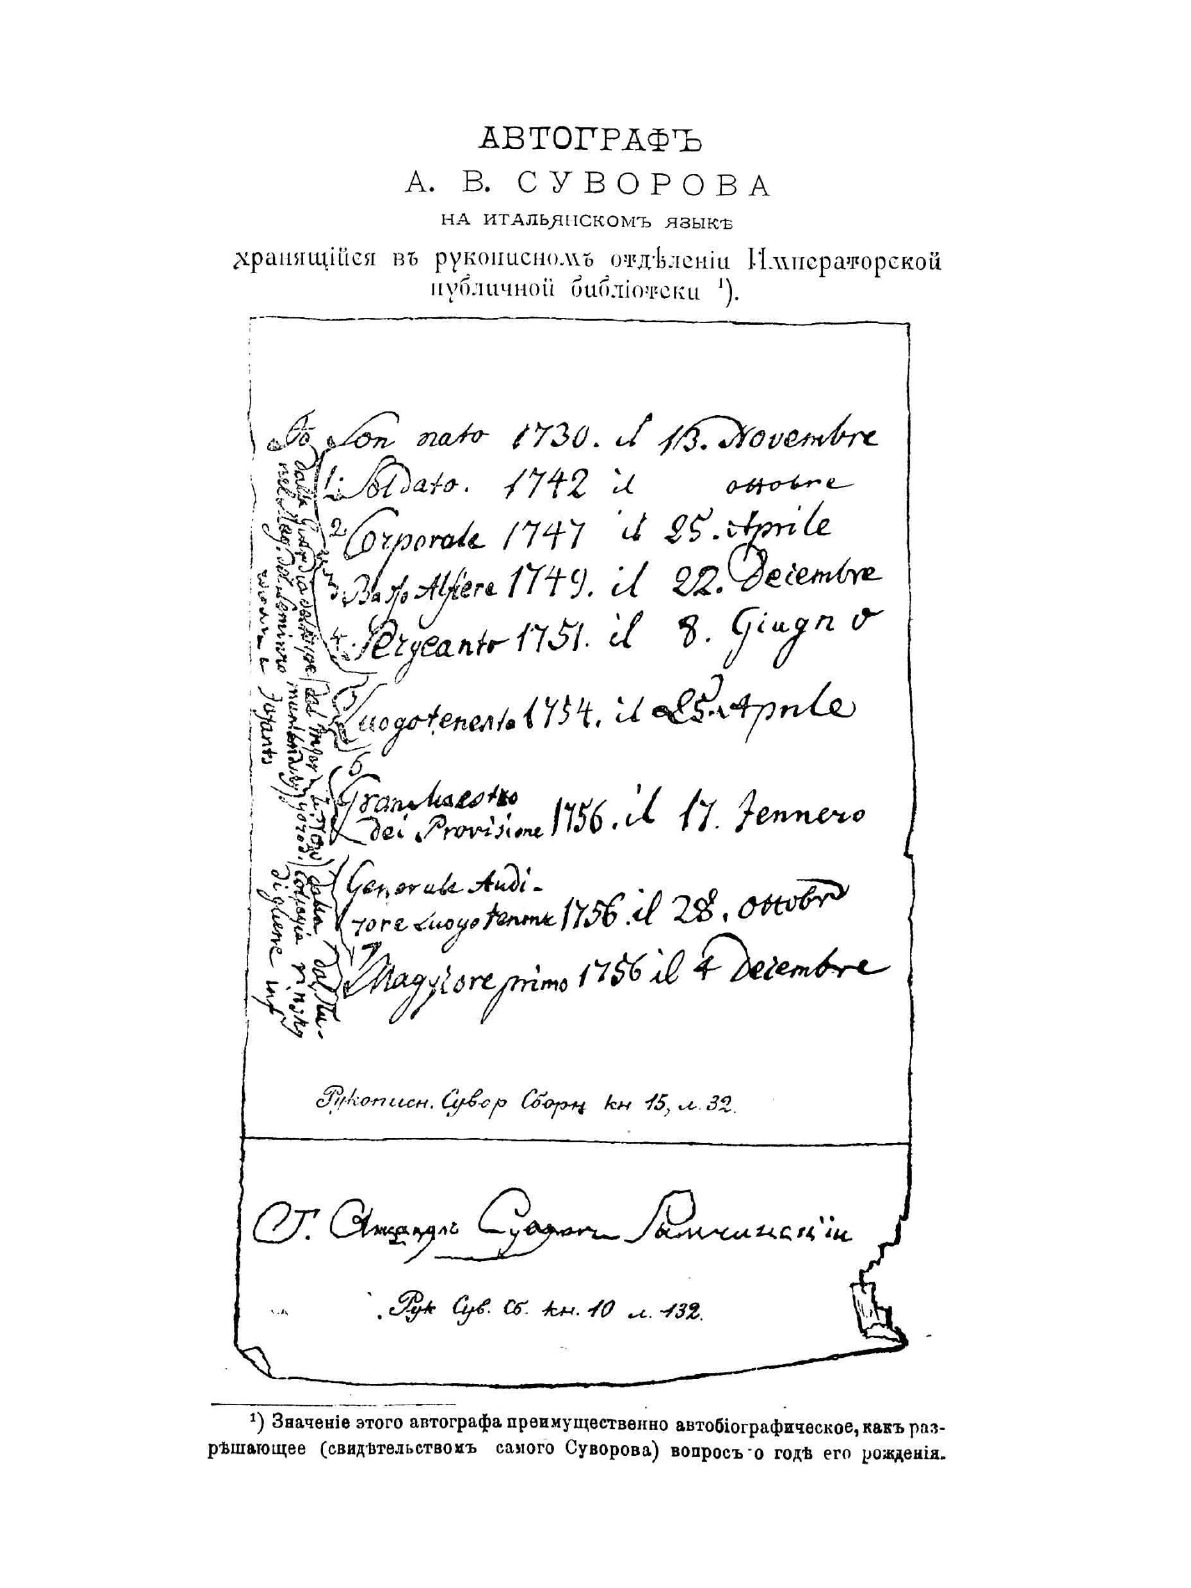 АВТОГРАФЪ
А. В. СУВОРОВА
НА ИТАЛЬЯНСКОМЪ ЯЗЫКѢ
хранящійся въ рукописномъ отдѣленіи Императорской
публичной библіотеки ¹).
Io Son nato 1730. il 13. Novembre
1. Soldato. 1742 il ottobre
2 Corporale 1747 il 25. Aprile
3. Basso Alfiere 1749. il 22. Deiembre
4. Sergeanto 1751. il 8. Giugno
5 Luogotenento 1754. il 25. Aprile
6
Gran Maestro
dei Provisione 1756. il 17. Jennero
Generale Audi-
tore Luogo tenente 1756. il 28. ottobre
7
Maggiore primo 1756 il 4 Deiembre
dalla
nel
dalla
di guerre inf
Рукописн. Сувор Сборн кн 15, л. 32.
Г. Александръ Суворовъ Рымникскій
Рук Сув. Сб. кн. 10 л. 132.
¹) Значеніе этого автографа преимущественно автобіографическое, какъ раз-
рѣшающее (свидѣтельствомъ самого Суворова) вопросъ о годѣ его рожденія.